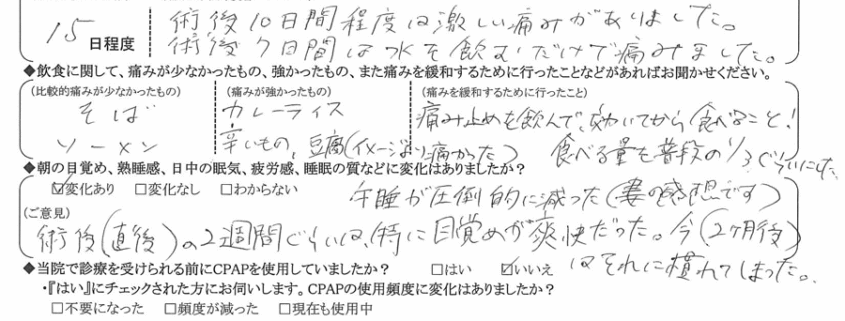 術後10日間程度は激しい痛みがありました。
15日程度 術後7日間は水を飲むだけで痛みました。
◆飲食に関して、痛みが少なかったもの、強かったもの、また痛みを緩和するために行ったことなどがあればお聞かせください。
(比較的痛みが少なかったもの) (痛みが強かったもの) (痛みを緩和するために行ったこと)
そば カレーライス 痛み止めを飲んで、効いてから食べること!
ソーメン 辛いもの、豆腐(イメージより痛かった) 食べる量を普段の1/3ぐらいにした。
◆朝の目覚め、熟睡感、日中の眠気、疲労感、睡眠の質などに変化はありましたか?
☑変化あり □変化なし □わからない 午睡が圧倒的に減った(妻の感想です)
(ご意見)
術後(直後)の2週間ぐらいは、特に目覚めが爽快だった。今(2ヶ月後)
はそれに慣れてしまった。
◆当院で診療を受けられる前にCPAPを使用していましたか? □はい ☑いいえ
・『はい』にチェックされた方にお伺いします。CPAPの使用頻度に変化はありましたか?
□不要になった □頻度が減った □現在も使用中